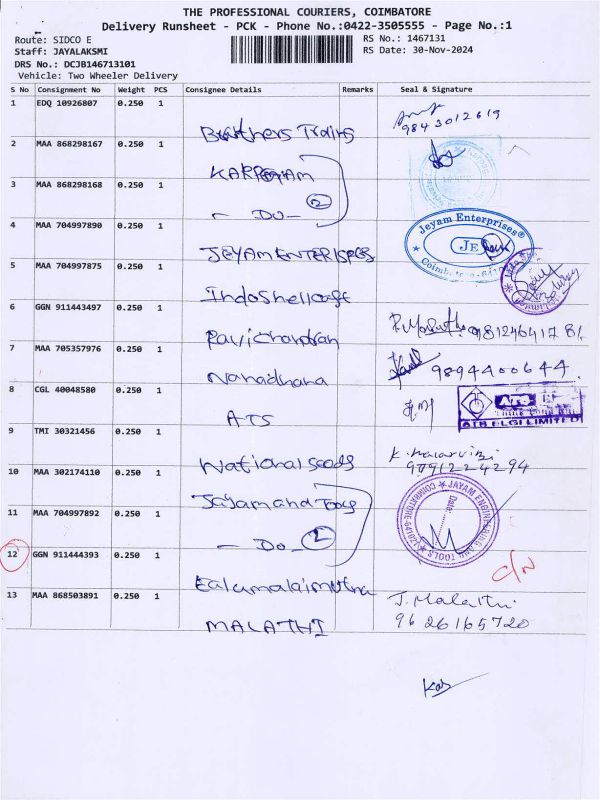 THE PROFESSIONAL COURIERS, COIMBATORE
Delivery Runsheet - PCK - Phone No.:0422-3505555 - Page No.:1
Route: SIDCO E
RS No.: 1467131
Staff: JAYALAKSMI
RS Date: 30-Nov-2024
DRS No.: DCJB146713101
Vehicle: Two Wheeler Delivery
S No Consignment No Weight PCS Consignee Details Remarks Seal & Signature
1 EDQ 10926807 0.250 1
Brothers 9843012619
2 MAA 868298167 0.250 1
KARPAGAM
3 MAA 868298168 0.250 1
- DO - 2
4 MAA 704997890 0.250 1
JEYAM ENTERISPES
Jeyam Enterprises®
JE
Coimbatore
5 MAA 704997875 0.250 1
Indoshellcast
6 GGN 911443497 0.250 1
Ravichandran
7 MAA 705357976 0.250 1
Nanadhana 9894400644
8 CGL 40048580 0.250 1
ATS
ATB ELGI LIMITED
9 TMI 30321456 0.250 1
National seeds
K. Malarvizi
9091224294
10 MAA 302174110 0.250 1
Jayam and Tools
JAYAM ENGINEERING AND TOOLS
COIMBATORE
Date:
11 MAA 704997892 0.250 1
- DO - 2
12 GGN 911444393 0.250 1
C/N
13 MAA 868503891 0.250 1
MALATHI
J. Malathi
9626165720